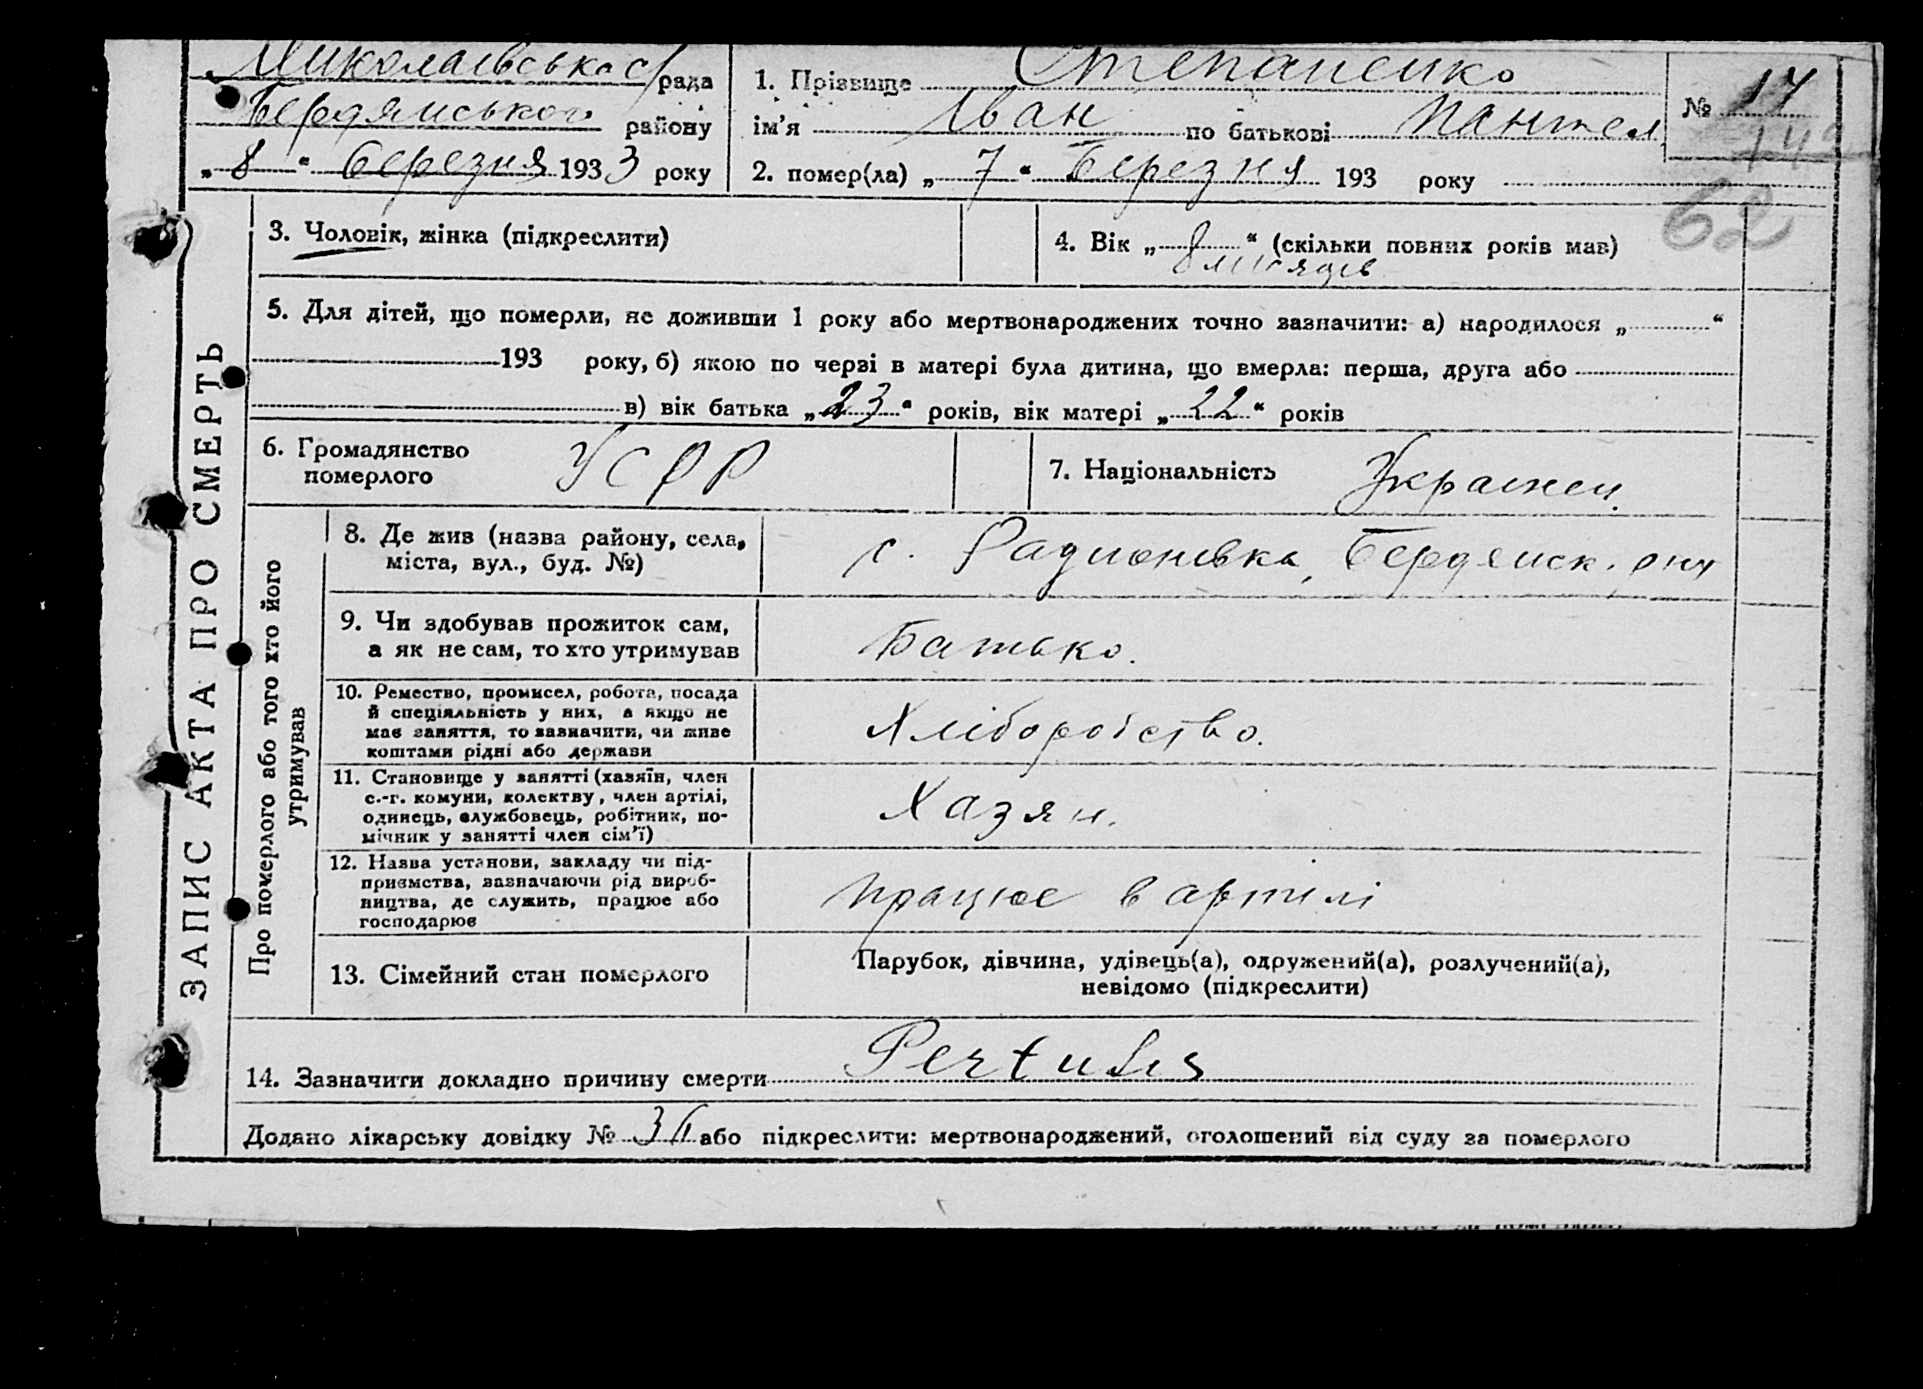 Миколаївська с/рада
Бердянського району
„ 8 “ березня 1933 року
1. Прізвище Степаненко
ім'я Іван по батькові Пантел
2. помер(ла) „ 7 “ Березня 193 року
№ 17
62
3. Чоловік, жінка (підкреслити)
4. Вік „ 8 “ (скільки повних років мав)
місяців
5. Для дітей, що померли, не доживши 1 року або мертвонароджених точно зазначити: а) народилося „ “
193 року, б) якою по черзі в матері була дитина, що вмерла: перша, друга або
в) вік батька „ 23 “ років, вік матері „ 22 “ років
6. Громадянство
померлого
УСРР
7. Національність Українец
ЗАПИС АКТА ПРО СМЕРТЬ
Про померлого або того хто його
утримував
8. Де жив (назва району, села,
міста, вул., буд. №)
с. Радионівка, Бердянск. рну
9. Чи здобував прожиток сам,
а як не сам, то хто утримував
Батько.
10. Ремество, промисел, робота, посада
й спеціяльність у них, а якщо не
має заняття, то зазначити, чи живе
коштами рідні або держави
Хліборобство.
11. Становище у занятті (хазяїн, член
с.-г. комуни, колектву, член артілі,
одинець, службовець, робітник, по-
мічник у занятті член сім'ї)
Хазян.
12. Назва установи, закладу чи під-
приємства, зазначаючи рід вироб-
ництва, де служить, працює або
господарює
працює в артилі
13. Сімейний стан померлого
Парубок, дівчина, удівець(а), одружений(а), розлучений(а),
невідомо (підкреслити)
14. Зазначити докладно причину смерти Pertusis
Додано лікарську довідку № або підкреслити: мертвонароджений, оголошений від суду за померлого